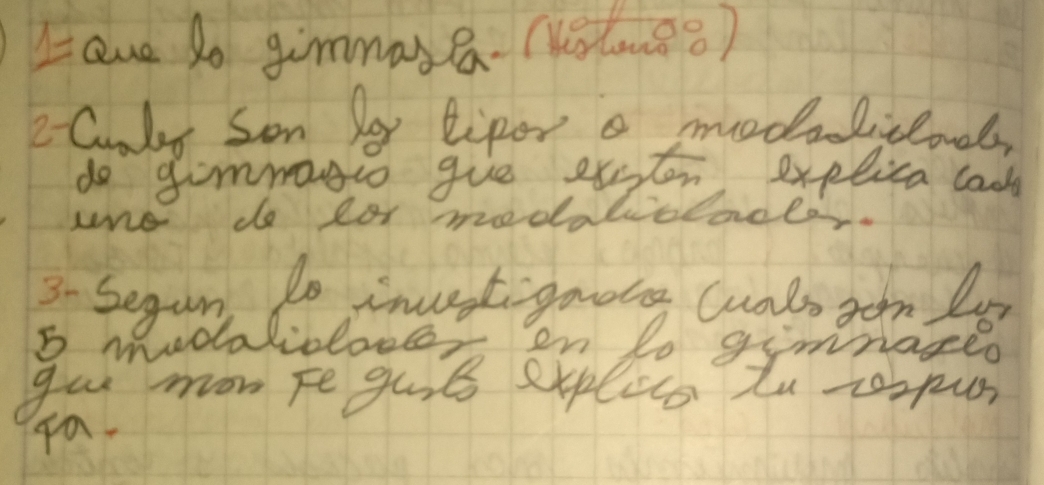 1= que la gimnasia. (Historia)
2- Cuales son los tipos o modalidades
de gimnasio que existen explica cada
uno de las modalidades.
3- Segun lo investigado cuales son las
5 modalidades en la gimnasio
que mas te gusto explica tu respues
ta.